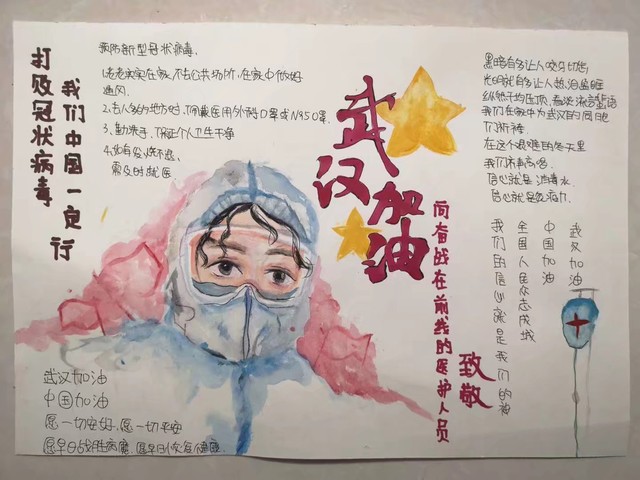 打败冠状病毒
我们中国一定行
预防新型冠状病毒.
1.老老实实在家,不去公共场所,在家中做好
通风.
2.去人多的地方时,佩戴医用外科口罩或N95口罩.
3.勤洗手,保证个人卫生干净
4.如有发烧不适
需及时就医
武汉加油
向奋战在前线的医护人员
致敬
纵然
我们在家中为武汉的同胞
们祈祷
在这个艰难的冬天里
我们不再
信心就是消毒水
信心就是免疫力
武汉加油
中国加油
全国人民众志成城
我们的信心就是我们的神
武汉加油
中国加油
愿一切安好,愿一切平安
愿早日战胜病魔,愿早日恢复健康